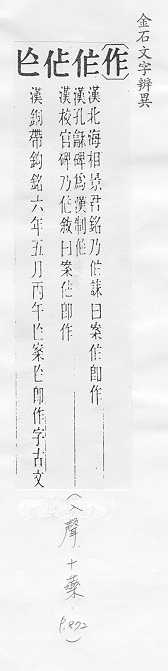 金石文字辨異
作
漢北海相景君銘乃作誄曰案作卽作
漢孔龢碑爲漢制作
漢校官碑乃作敘曰案作卽作
漢銅帶鉤銘六年五月丙午案卽作字古文
(入聲十藥 P.892)